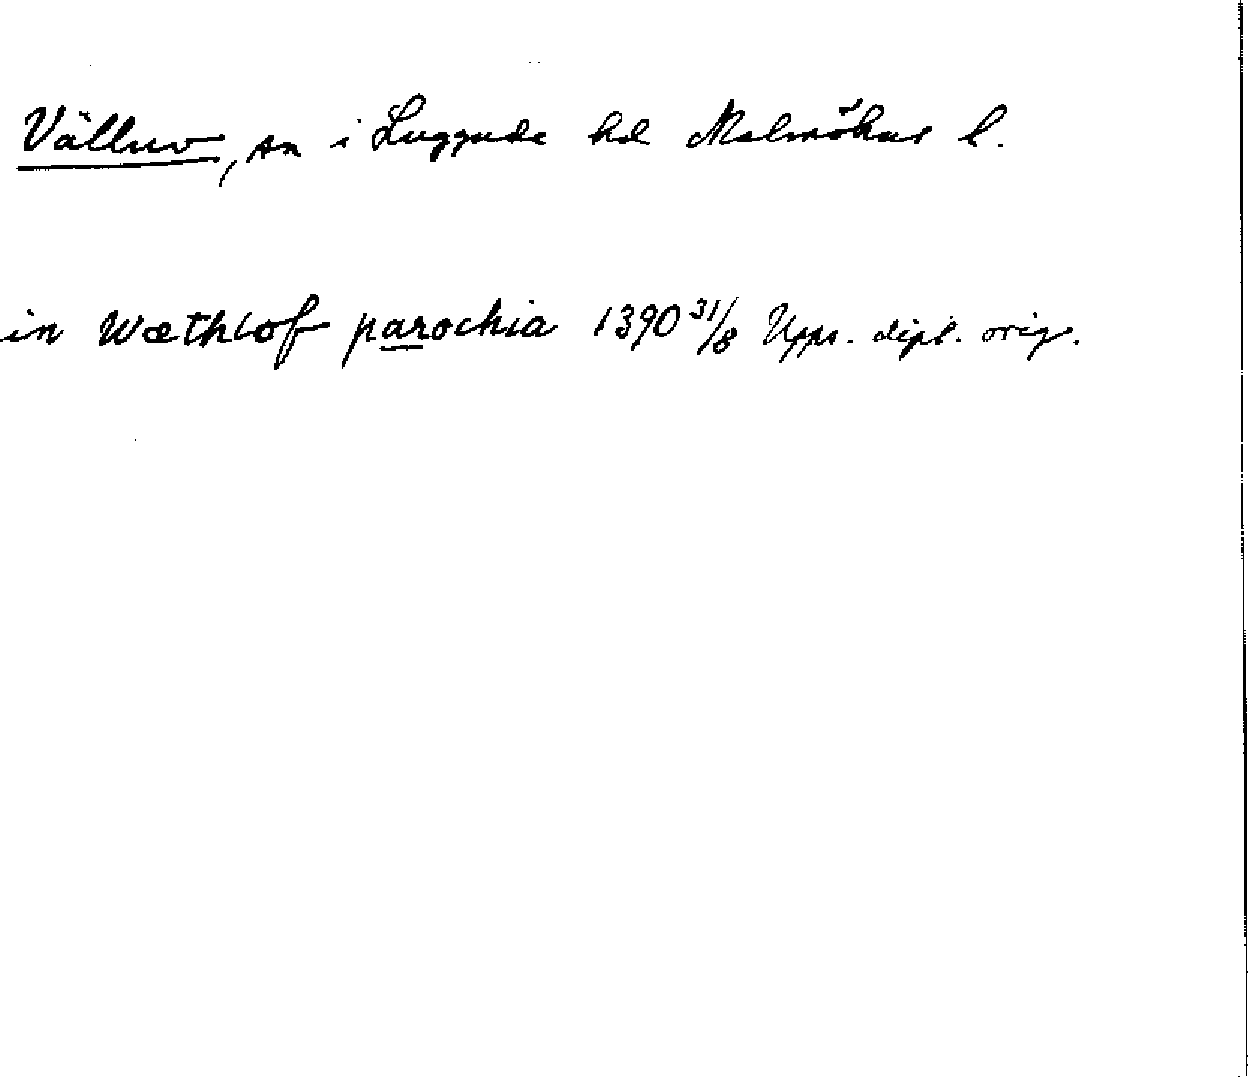 Välluv, sn i Luggude hd Malmöhus l.
in Wæthlof parochia 1390 31/8 Upps. dipl. orig.